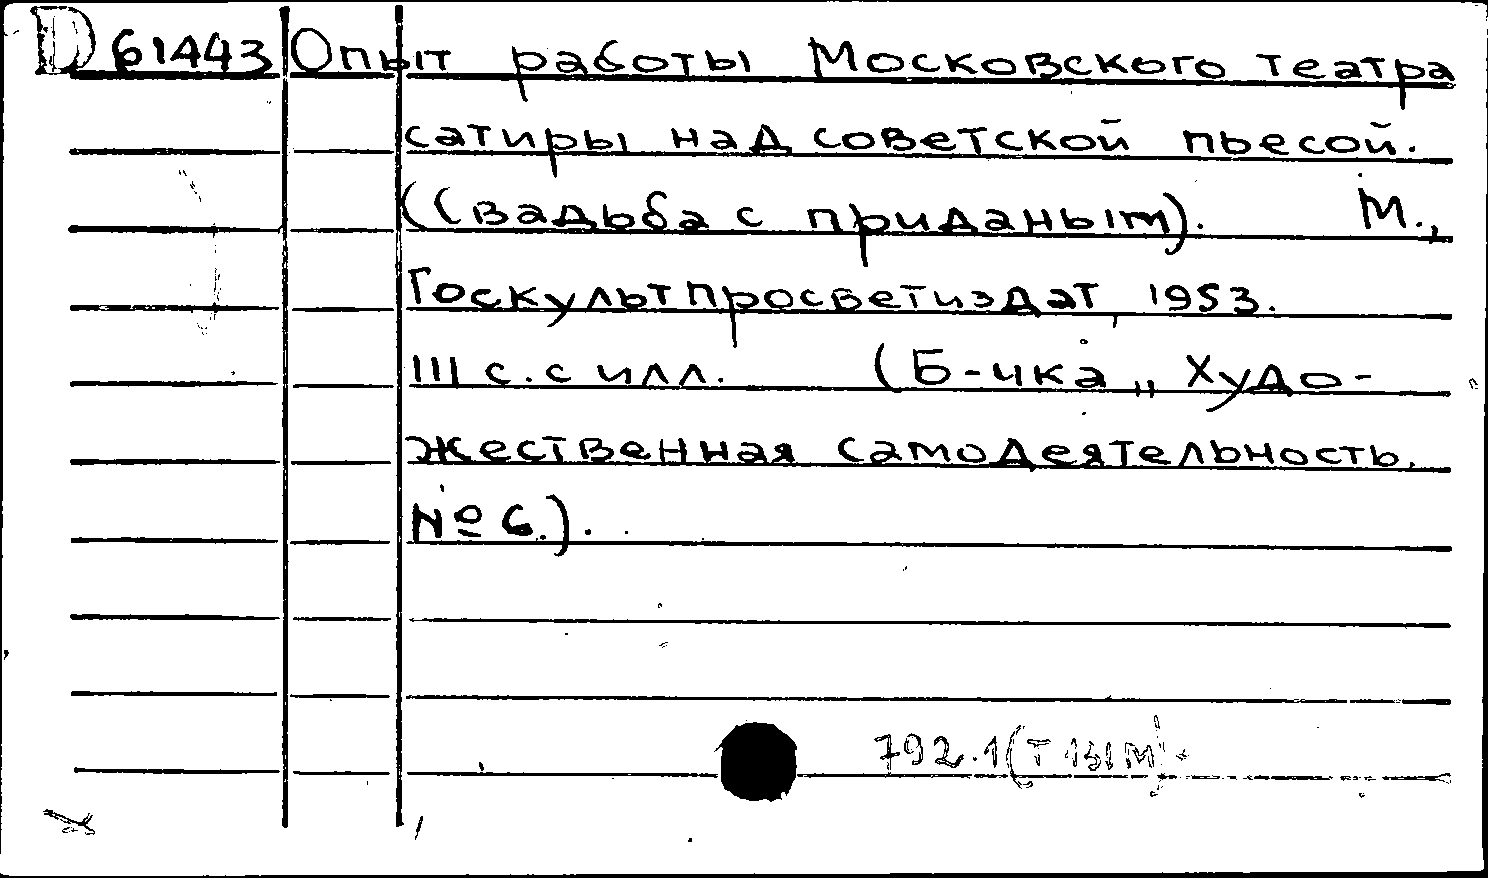 D 61443 Опыт работы Московского театра
сатиры над советской пьесой.
(Свадьба с приданым). М.,
Госкультпросветиздат, 1953.
111 с. с илл. (Б-чка „Худо-
жественная самодеятельность.
№ 6.).
792.1